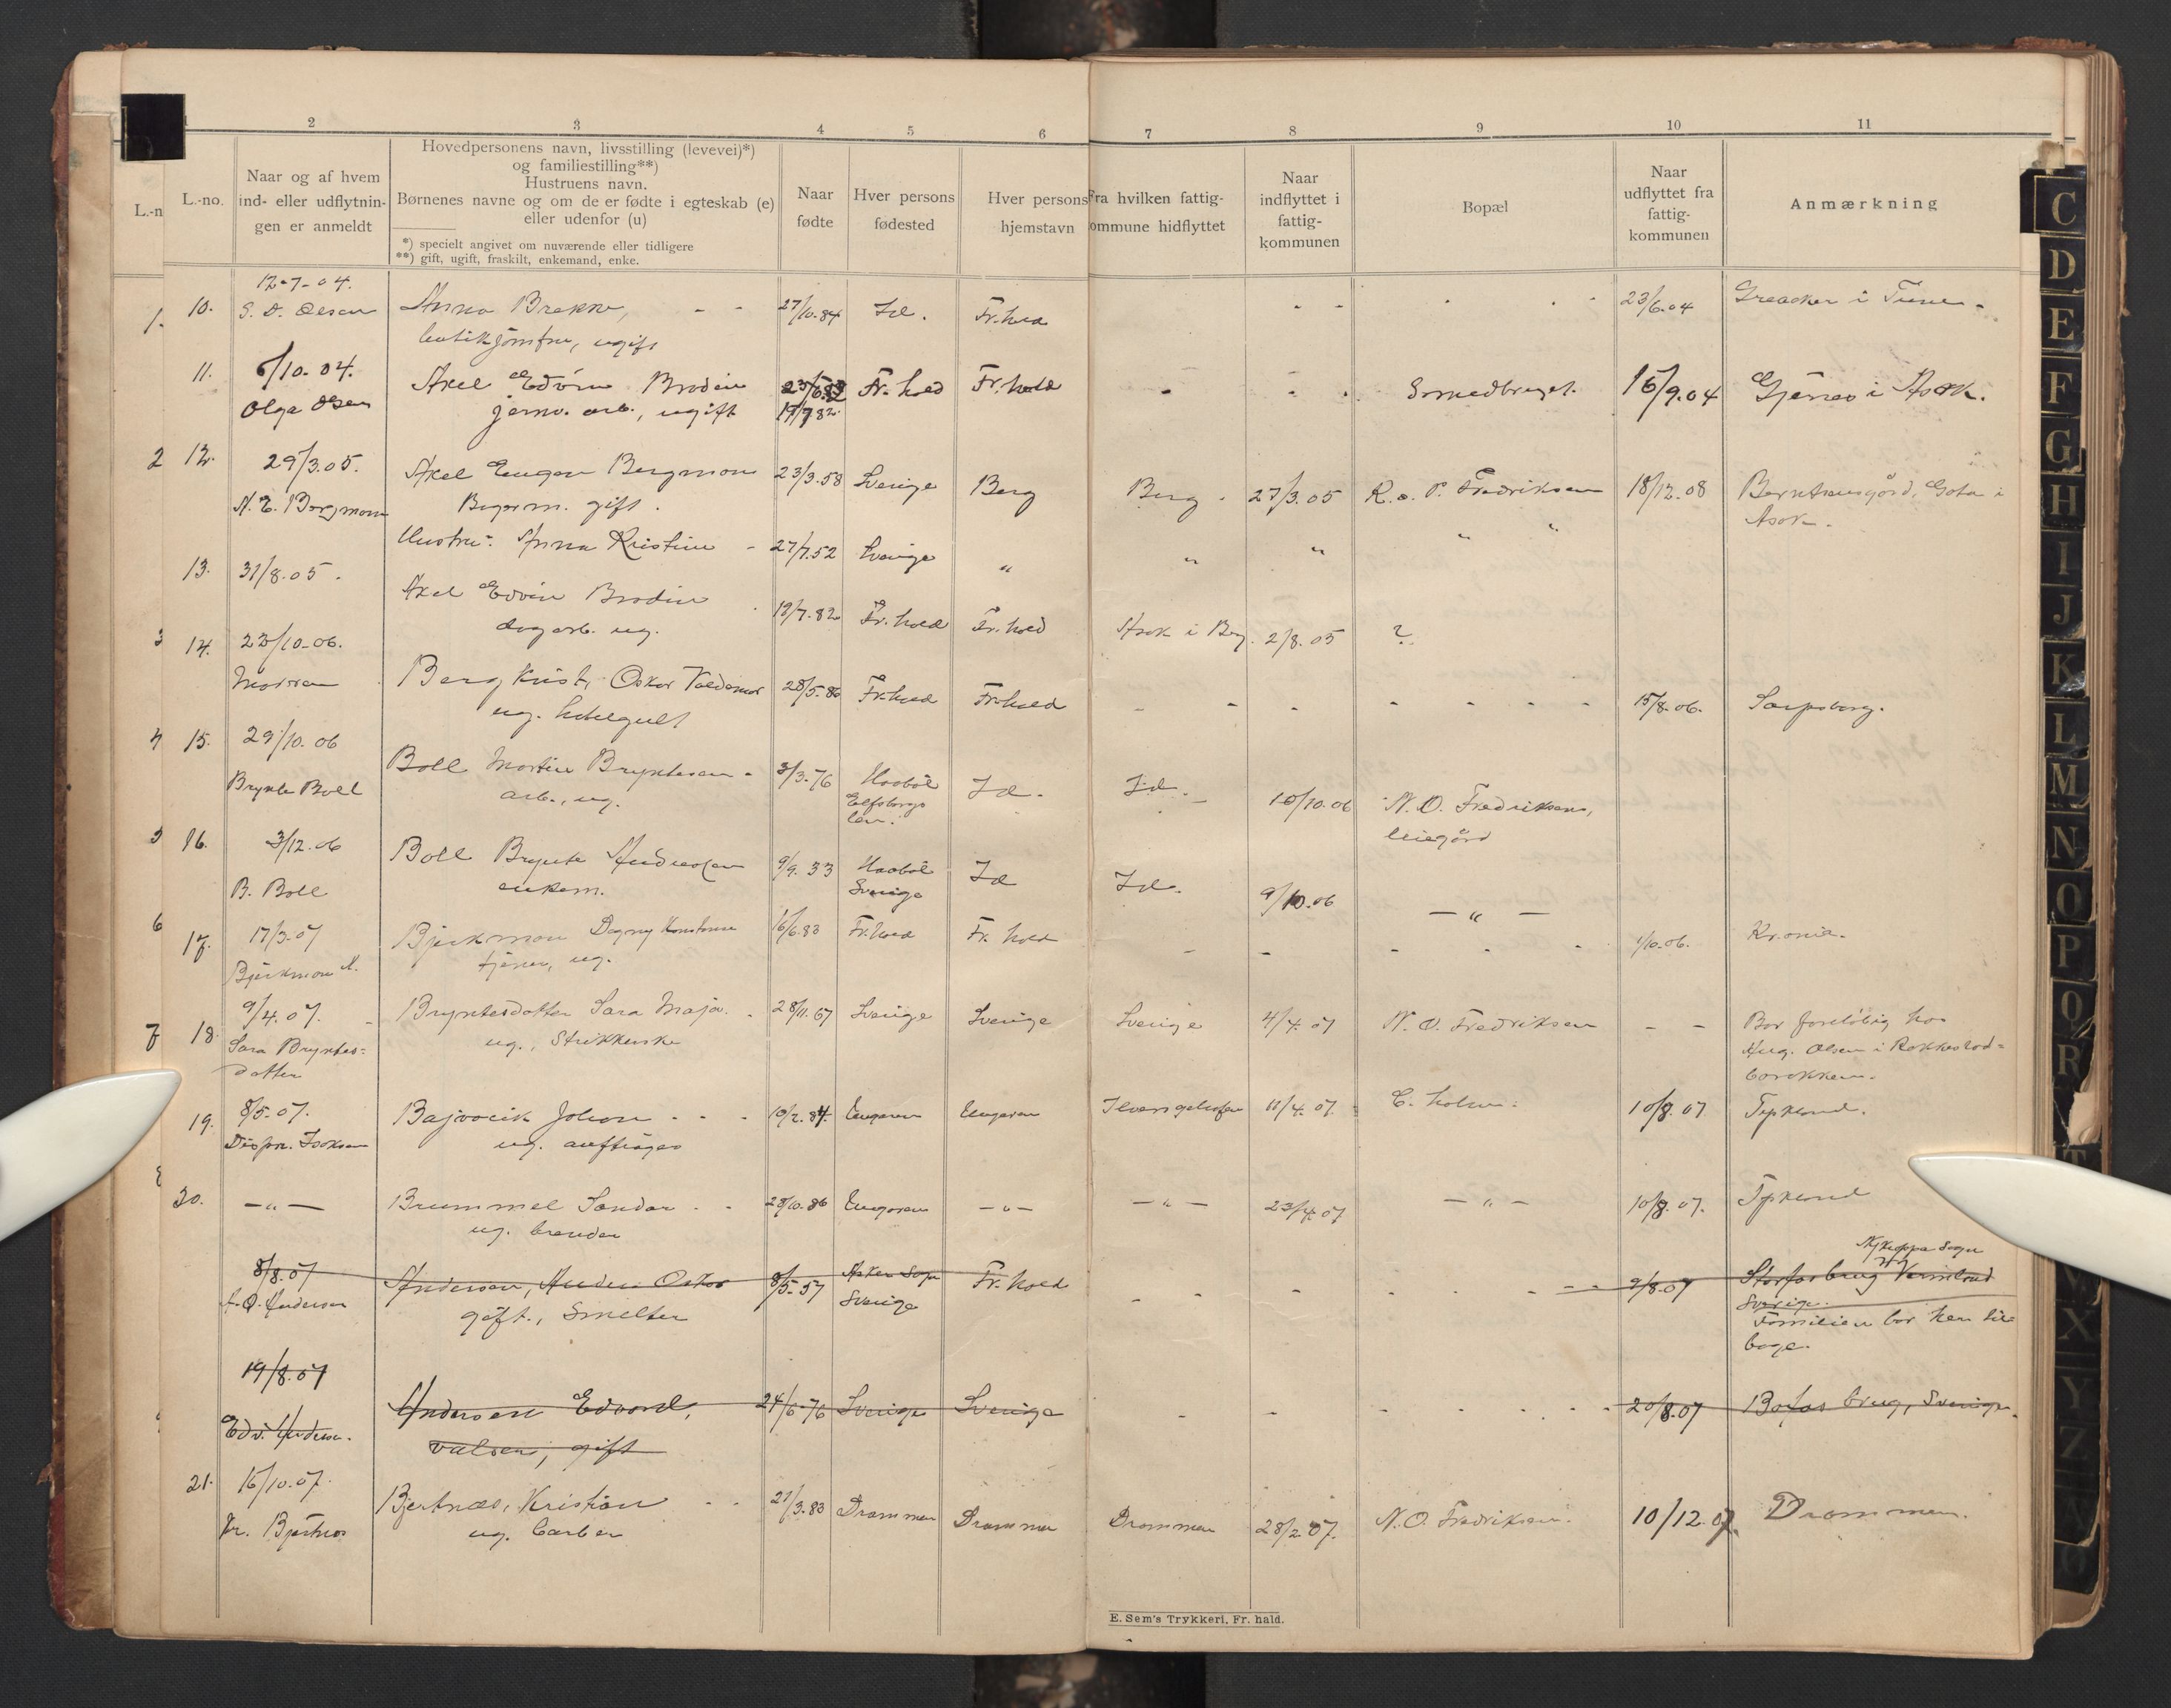 1 2 3 4 5 6 7 8 9 10 11
L.-n
L.-no.
Naar og af hvem
ind- eller udflytnin-
gen er anmeldt
Hovedpersonens navn, livsstilling (levevei)*)
og familiestilling**)
Hustruens navn.
Børnenes navne og om de er fødte i egteskab (e)
eller udenfor (u)
*) specielt angivet om nuværende eller tidligere
**) gift, ugift, fraskilt, enkemand, enke.
Naar
fødte
Hver persons
fødested
Hver persons
hjemstavn
Fra hvilken fattig-
ommune hidflyttet
Naar
indflyttet i
fattig-
kommunen
Bopæl
Naar
udflyttet fra
fattig-
kommunen
Anmærkning
12-7-04.
1. 10. S. O. Olsen Anna Brekke, - - 27/10.84 Id. Fr.hald - - 23/6.04 Greaaker i Tune.
butikjomfru, ugift
11. 6/10-04. Axel Edvin Brodin 23/6.82 Fr. hald Fr. hald - - Smedbruget. 15/9.04 Gjenes i Asak.
Olga Olsen jernv. arb., ugift 19/7 82.
2 12. 29/3.05. Axel Eugen Bergman 23/3.58 Sverige Berg Berg 27/3.05 R. o. P. Fredriksen 18/12.08 i
A. E. Bergman gift. Asak.
Hustru: Anna Kristine - 27/7.52 Sverige " " " " "
13. 31/8.05. Axel Edvin Brodin 19/7.82 Fr. hald Fr. hald Asak i Berg. 2/8.05 ?
dagarb. ug.
3 14. 23/10-06. Bergkvist, Oskar Valdemar 28/5.86 Fr.hald Fr.hald - - - - - - - 15/8.06. Sarpsborg.
Moren ug. hotelgut
4 15. 29/10.06 Boll Martin Bryntesen - 3/3.76 Haabøl Id. Id. 10/10.06 N. O. Fredriksens,
Brynte Boll arb., ug. Elfsborgs leiegård
len.
5 16. 3/12.06 Boll Brynte Andreasen 9/9.33 Haabøl Id Id. 9/10.06 — " —
B. Boll enkem. Sverige
6 17. 17/3.07 Bjerkman Dagny Konstanse 16/6.83 Fr.hald Fr. hald - - - - - 1/10.06. Kr.ania.
Bjerkman A. tjener, ug.
7 18. 9/4.07. Bryntesdatter Sara Maja. - 28/11.67 Sverige Sverige Sverige 4/4.07 N. O. Fredriksen - - Bor foreløbig hos
Sara Bryntes= ug., Strikkerske Aug. Olsen i Rokkestad=
datter barakken.
19. 8/5.07. Bajvocik Johan - - - 10/2.84. Ungarn Ungarn 11/4.07 C. holm. 10/8.07 Tyskland.
Dispon. Isaksen ug.
8 20. — " — Brummel Sandor - - 28/10.86 Ungarn — " — — " — 23/4.07 — " — 10/8.07. Tyskland
ug.
8/8.07 Andersen, Anders Oskar 8/5-57 Asker Sogn Fr. hald - - - - - - - 9/8.07 Storfors brug Vermland
A. O. Andersen gift., Smelter Sverige Sverige.
Familien bor her til=
bage.
19/8.07
Edv. Andersen. Andersen Edvard, 24/6-76 Sverige Sverige - - - - - - 20/8.07 Bofors brug, Sverige.
valser, gift
21. 16/10.07. Bjertnæs, Kristian - - 21/3.83 Drammen Drammen Drammen 28/2.07. N. O. Fredriksen. 10/12.07. Drammen.
Kr. Bjertnæs ug. barber
E. Sem's Trykkeri, Fr. hald.
C
D
E
F
G
H
I
J
K
L
M
N
O
P
Q
R
T
V
X
Y
Z